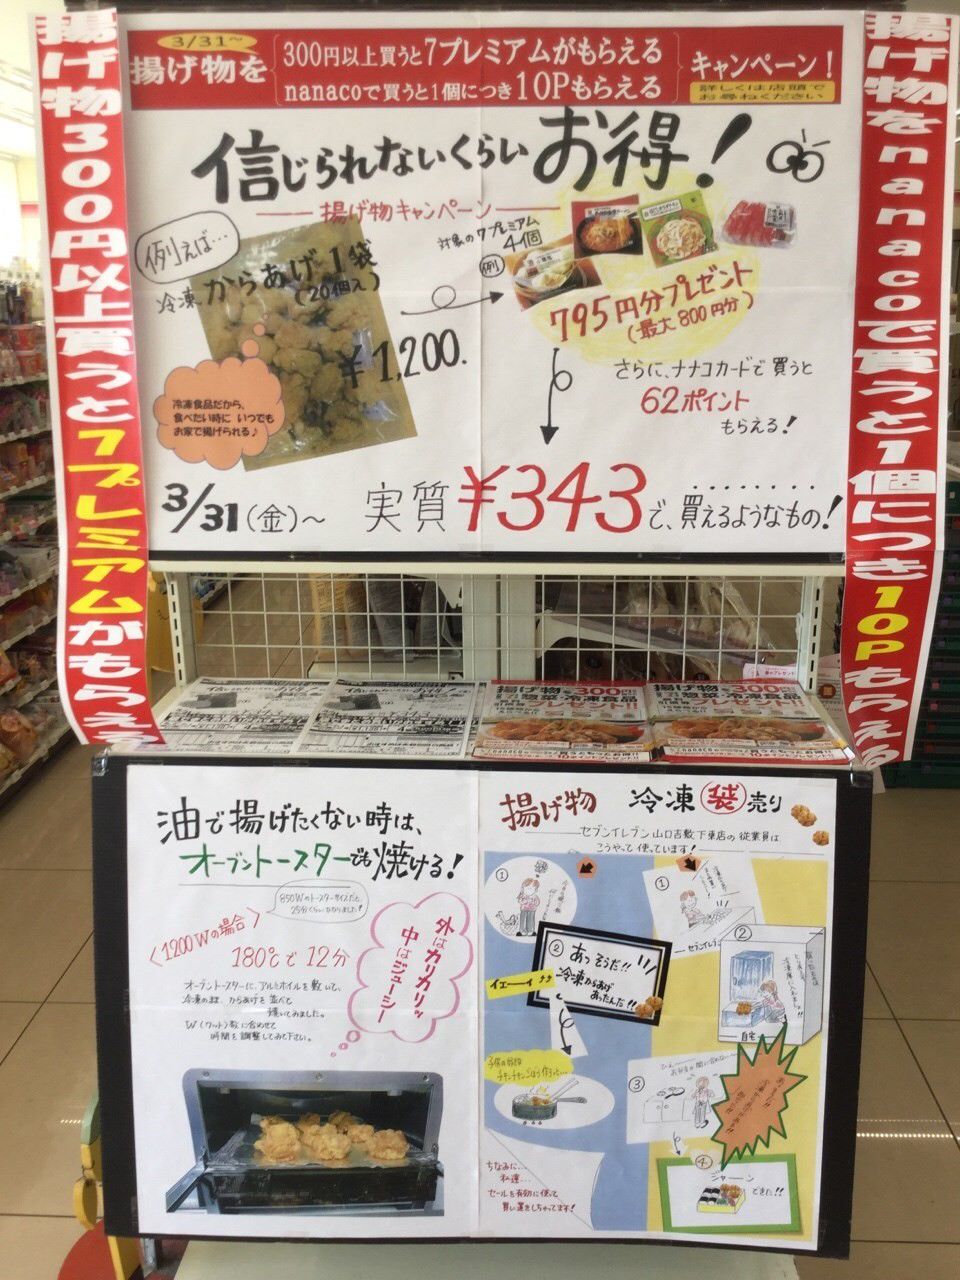 揚げ物300円以上買うと7プレミアムがもらえる
3/31~
揚げ物を
300円以上買うと7プレミアムがもらえる
nanacoで買うと1個につき10Pもらえる
キャンペーン!
詳しくは店頭で
お尋ねください
揚げ物をnanacoで買うと1個につき10Pもらえる
信じられないくらいお得!
揚げ物キャンペーン
例えば…
冷凍からあげ1袋
(20個入)
¥1,200.
対象の7プレミアム
4個
例
795円分プレゼント
(最大800円分)
さらに、ナナコカードで買うと
62ポイント
もらえる!
冷凍食品だから、
食べたい時にいつでも
お家で揚げられる♪
3/31(金)~ 実質¥343で、買えるようなもの!
油で揚げたくない時は、
オーブントースターでも焼ける!
850Wのトースターサイズだと、
25分くらいかかりました!
〈1200Wの場合〉
180℃で12分
オーブントースターに、アルミホイルを敷いて、
冷凍のまま、からあげを並べて
焼いてみました。
W(ワット)数に合わせて
時間を調整してみて下さい。
外はカリカリッ
中はジューシー
揚げ物 冷凍袋売り
セブンイレブン山口吉敷下東店の従業員は
こうやって使っています!
①
②
あっそうだ!!
冷凍からあげ
あったんだ!!
イェーイ
①
セブンイレブン
②
自宅
③
④
ジャーン
できた!!
ちなみに…
私達…
セールを有効に使って
買い置きしちゃってます!